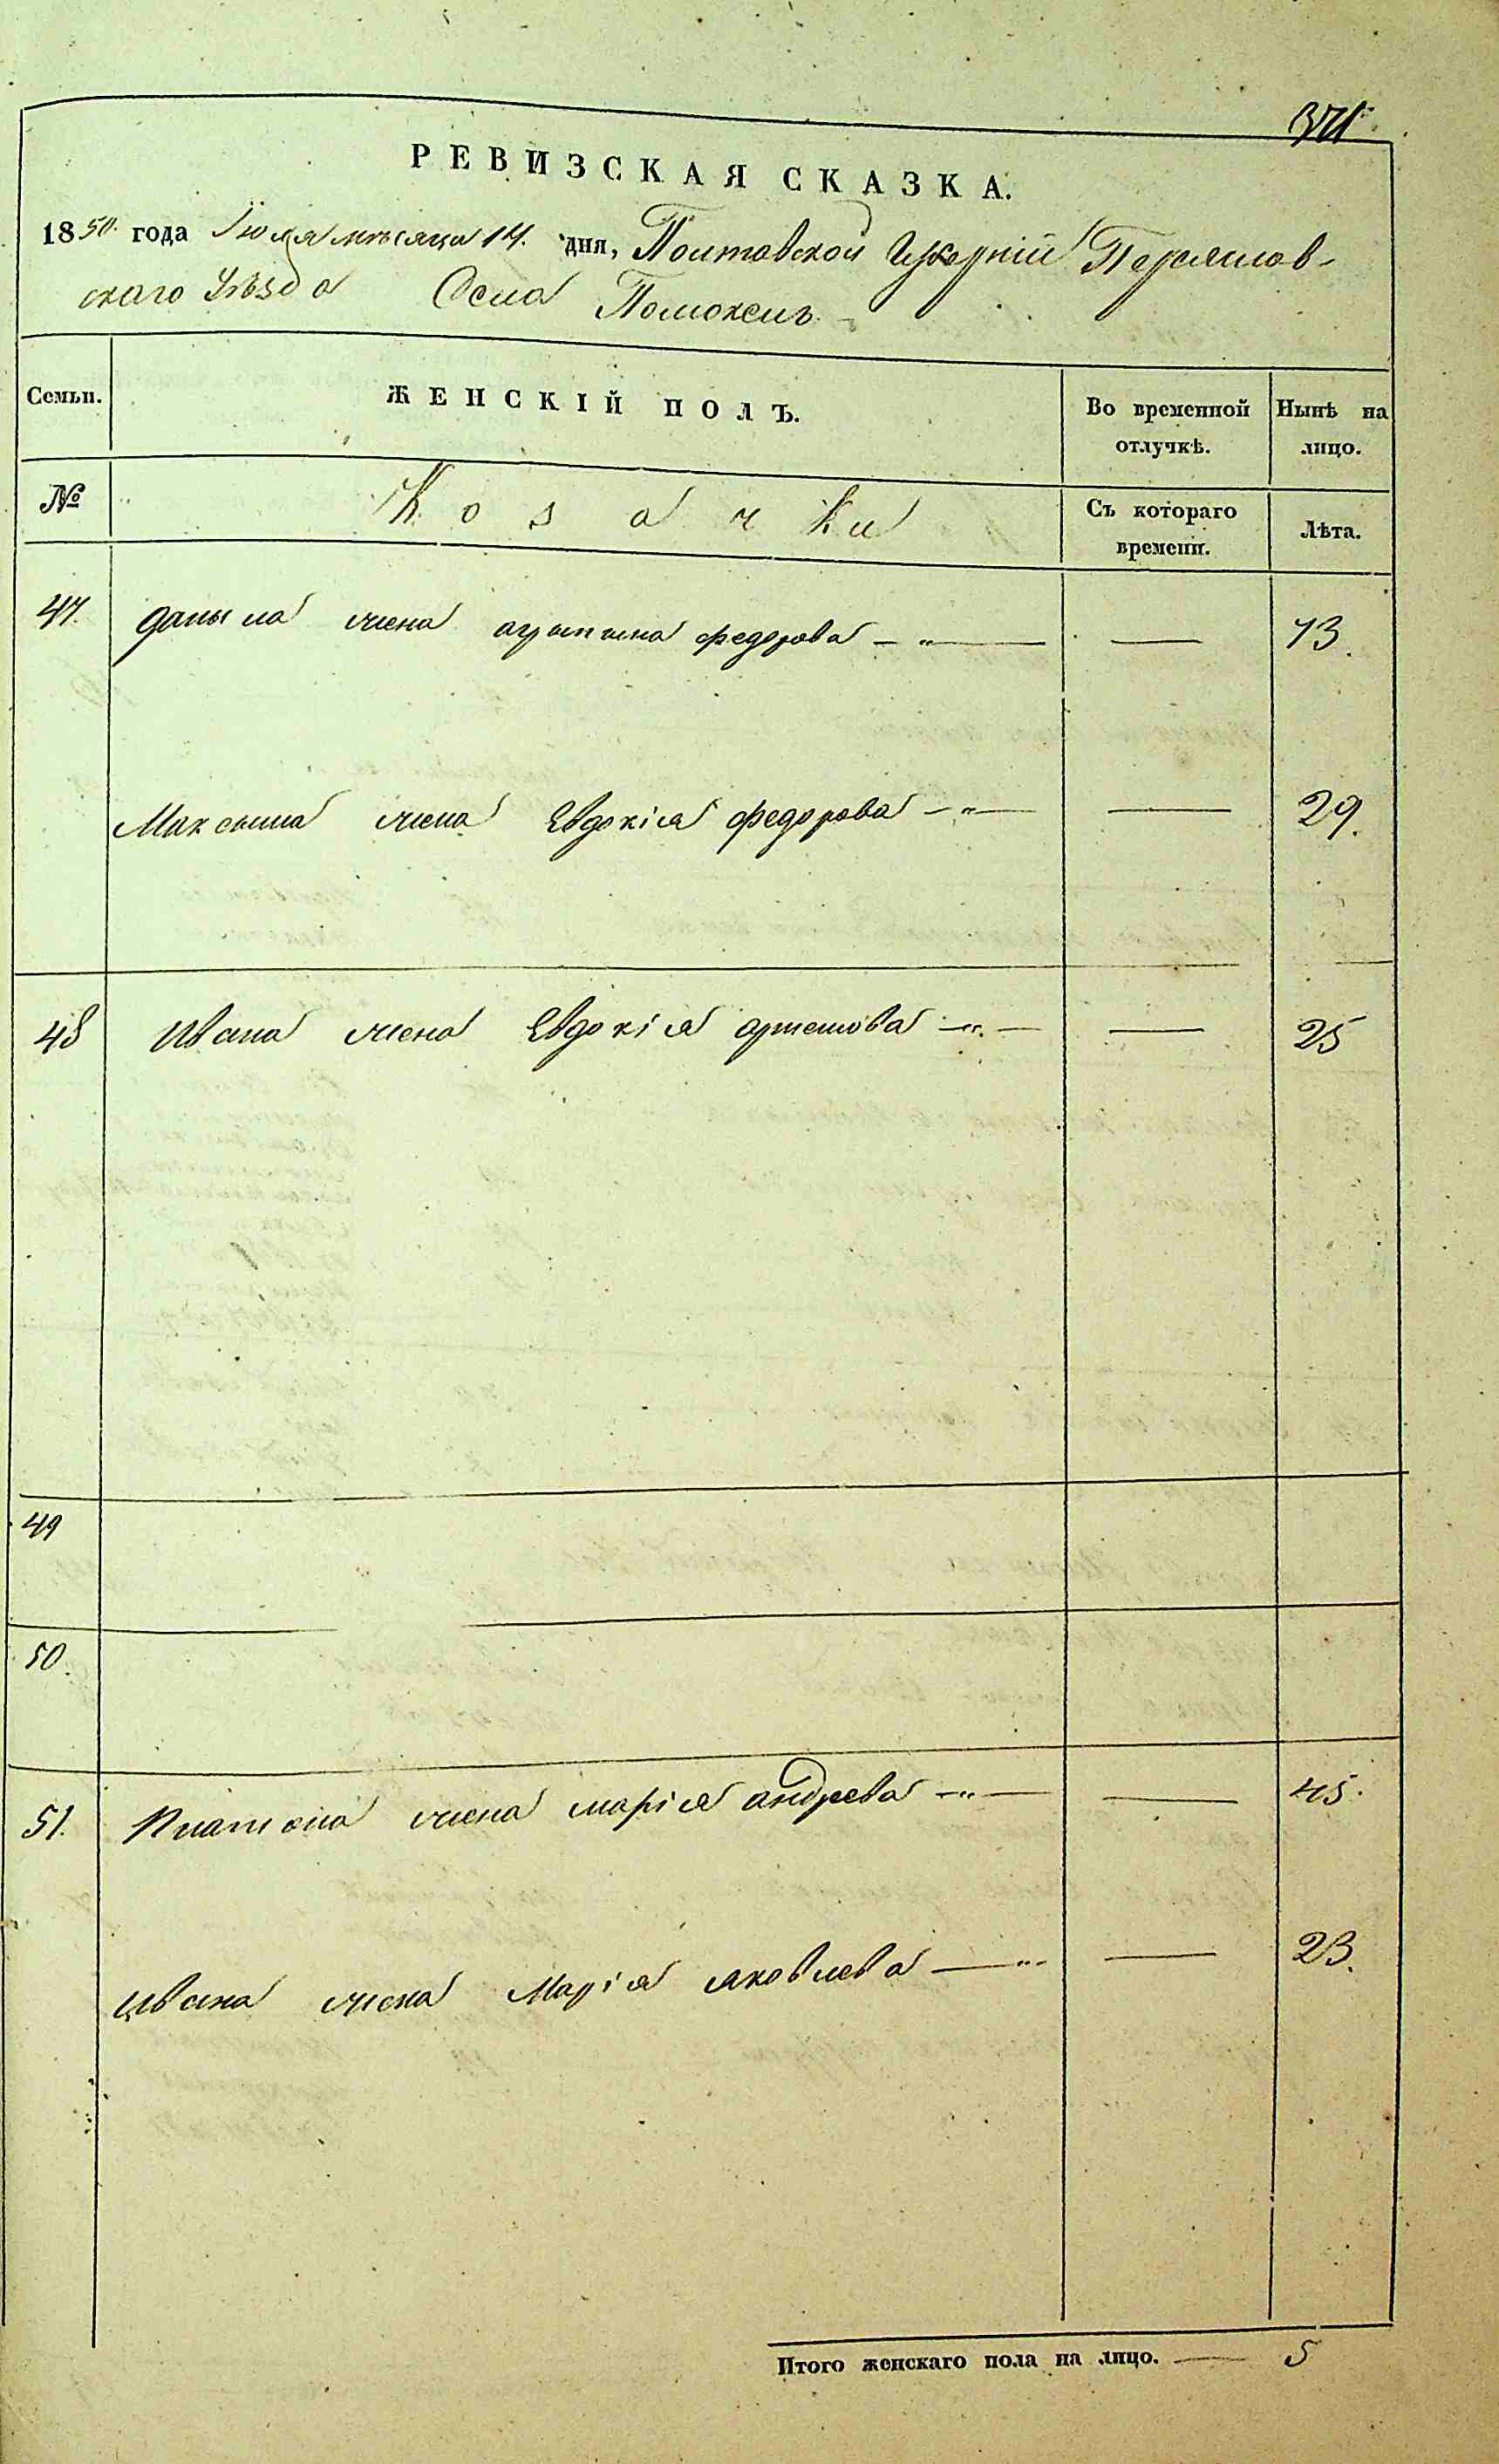 371
РЕВИЗСКАЯ СКАЗКА.
1850. года Іюля мѣсяца 14. дня, Полтавской Губерніи Переяслов-
скаго Уѣзда Села Помоклъ
Семьи. ЖЕНСКІЙ ПОЛЪ. Во временной отлучкѣ. Нынѣ на лицо.
№ Козачки Съ котораго времени. Лѣта.
47. Данила жена агрипина федорова — „ — — 73.
Максима жена Евдокія федорова — „ — — 29.
48 Ивана жена Евдокія артемова — „ — — 25
49
50.
51. Платона жена марія андреева — „ — — 45.
Ивана жена Марія яковлева — „ — 23.
Итого женскаго пола на лицо. — 5